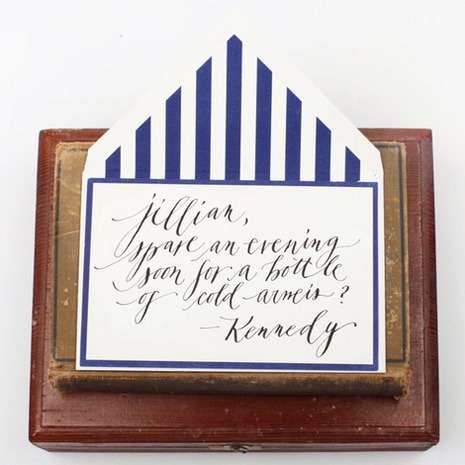 jillian,
spare an evening
soon for a bottle
of cold armeis?
—Kennedy